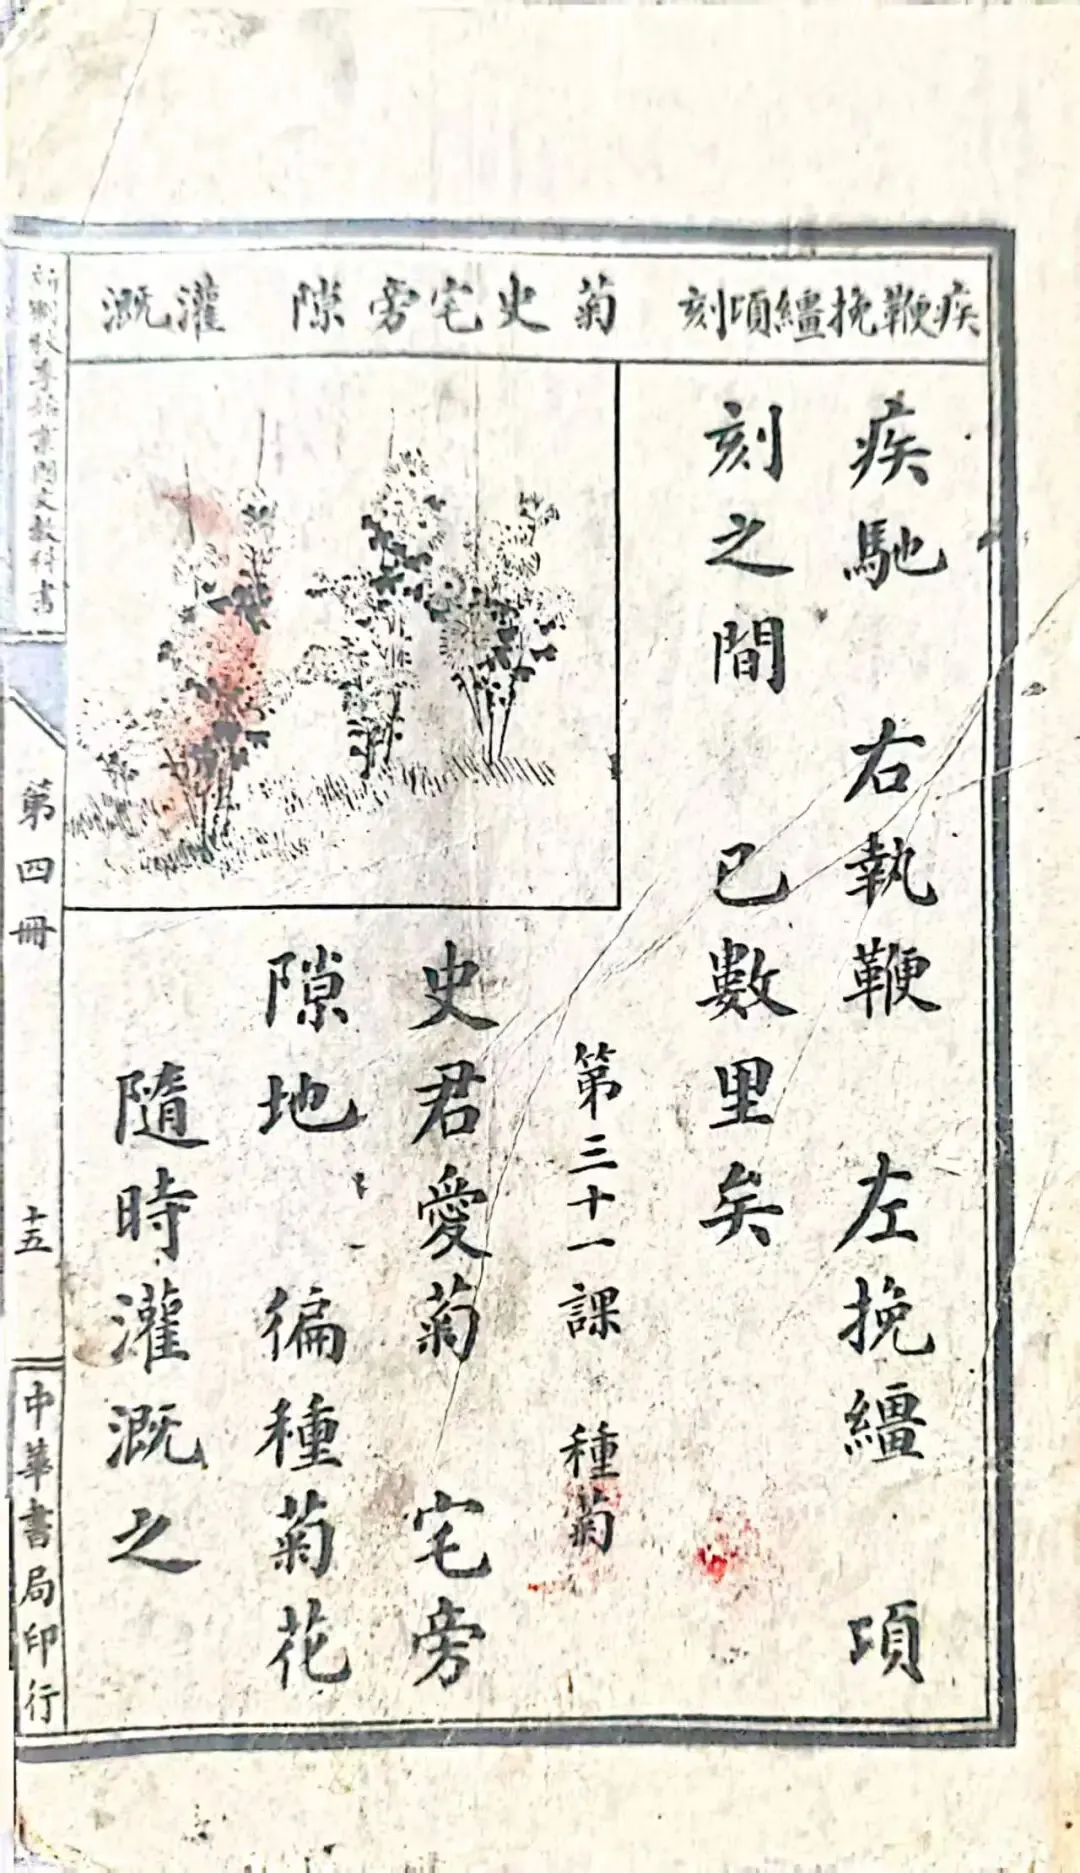 疾鞭挽繮頃刻　菊　史宅旁隙　灌溉
疾馳　右執鞭　左挽繮　頃
刻之間　已數里矣
第三十一課　種菊
史君愛菊　宅旁
隙地　徧種菊花
隨時灌溉之
新制秋季始業國文教科書
第四冊
十五
中華書局印行